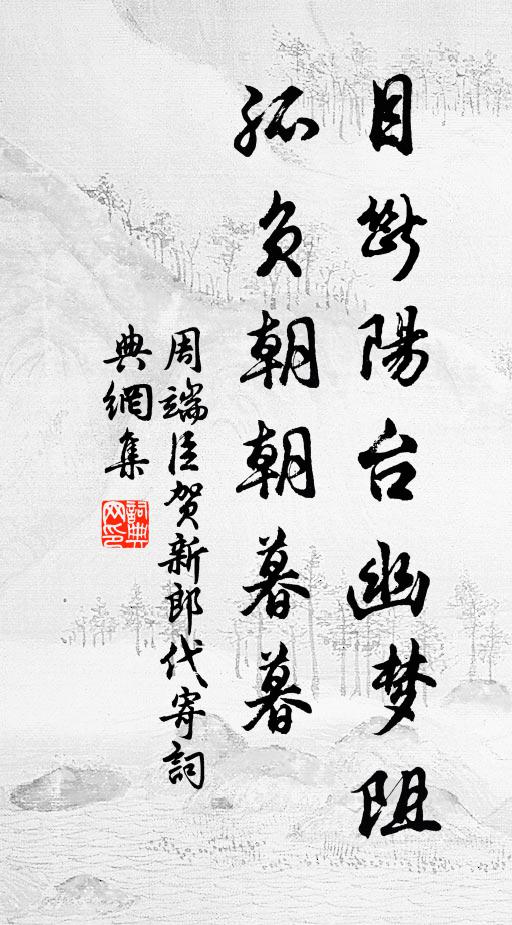 目断陽台幽梦阻
孤负朝朝暮暮
周端臣贺新郎代寄詞
典網集
詞典网印